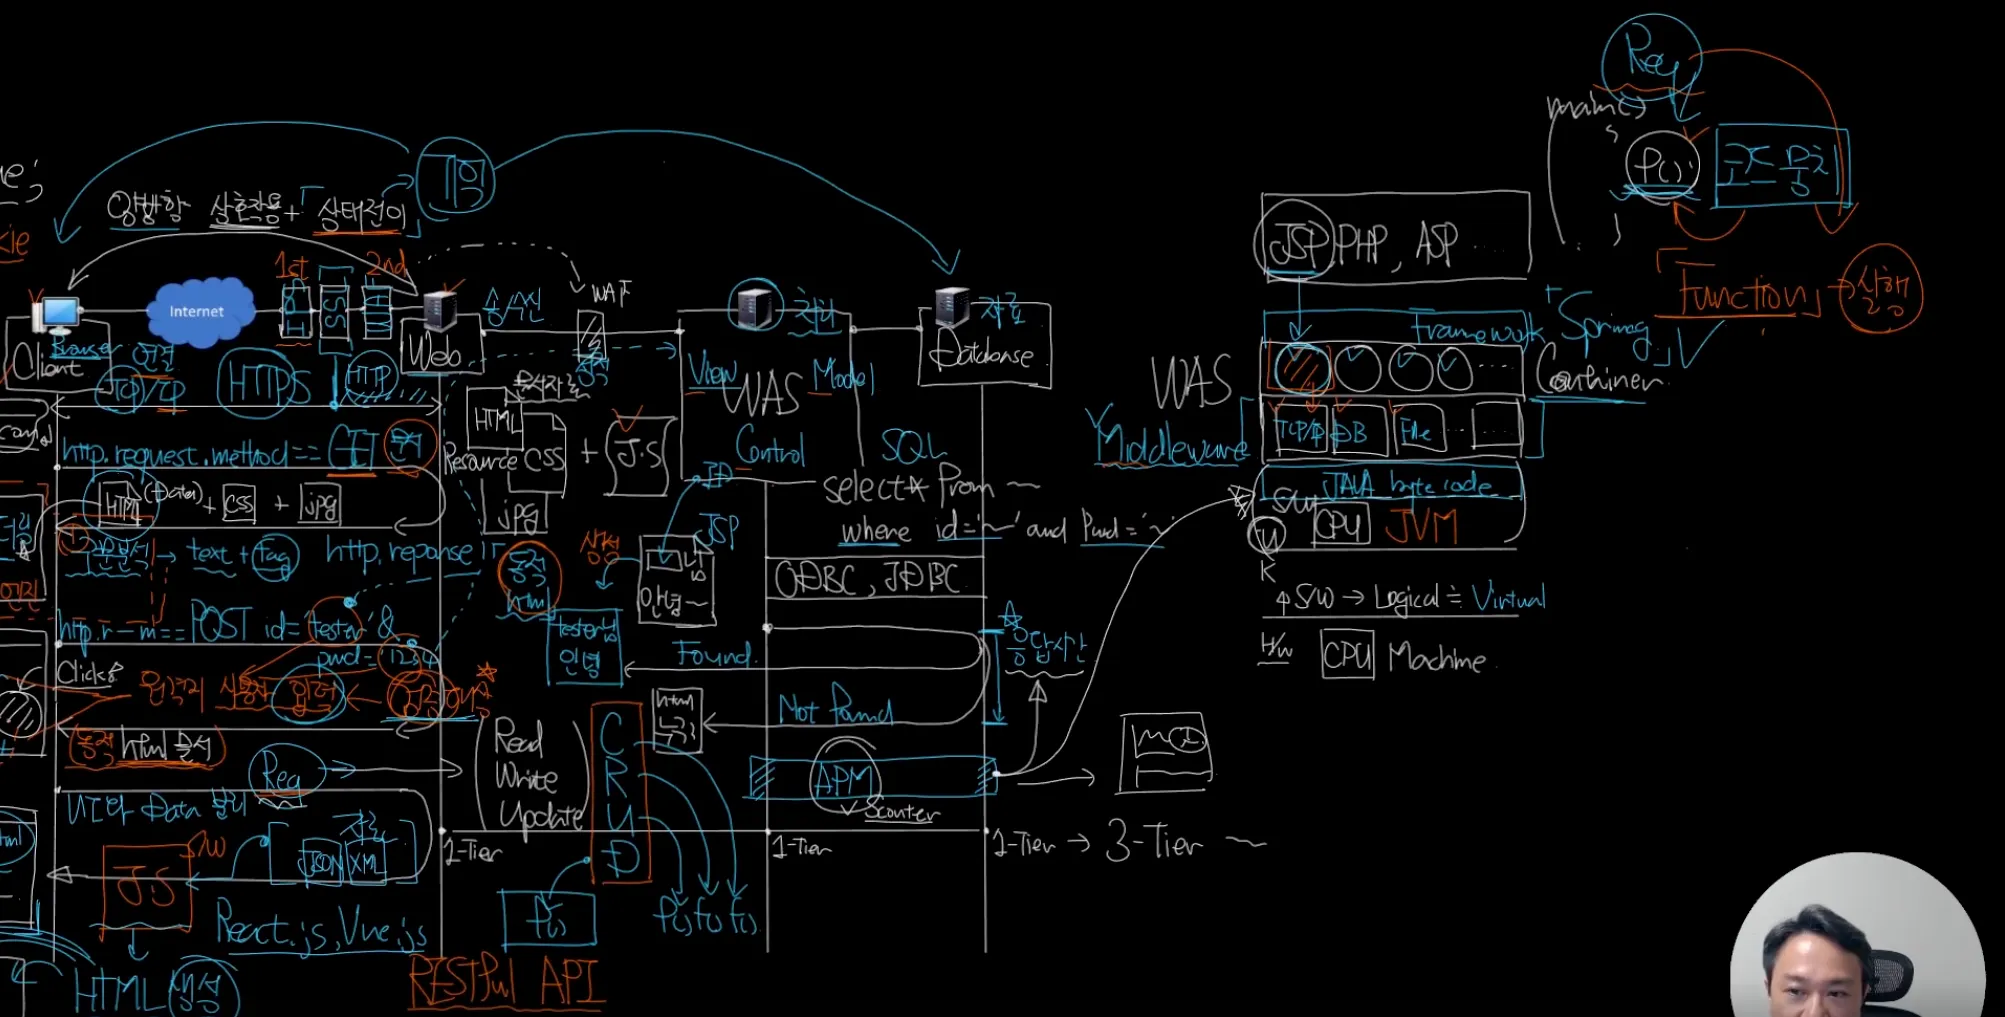 Req
main()
f();
코드 뭉치
기억
양방향 상호작용 + 「상태전이」
kie
JSP, PHP, ASP ....
「Function」 → 실행
1st
2nd
WAF
송/수신
처리
자료
Internet
Framework
「Spring」
Container
Client
Browser
연결
TCP/IP
HTTPS
HTTP
Web
View
WAS
Model
Control
Database
WAS
Middleware
TCP/IP
DB
File
http.request.method == GET 문서
HTML
CSS
Resource
jpg
+
J.S
SQL
select * from ~
where id='~' and pwd='~'
ODBC, JDBC
HTML
(+Data)
+ CSS + jpg
JAVA byte code
S/W
CPU
JVM
U
K
구문분석 → text + tag
http.reponse
동적
html
생성
ID
JSP
님
안녕~
S/W → Logical ≒ Virtual
H/W
CPU
Machine
http.r-m == POST id='tester' &
pwd='1234'
tester님
안녕
Found.
Not Found
응답시간
html
누구?
Click
원격지 사용자 입력
동적 html 문서
Req
Read
Write
Update
C
R
U
D
APM
Scouter
UI와 Data 분리
자료
JSON
XML
S/W
J.S
1-Tier
1-Tier
1-Tier → 3-Tier ~
React.js, Vue.js
f()
f() f() f()
HTML 생성
RESTful API